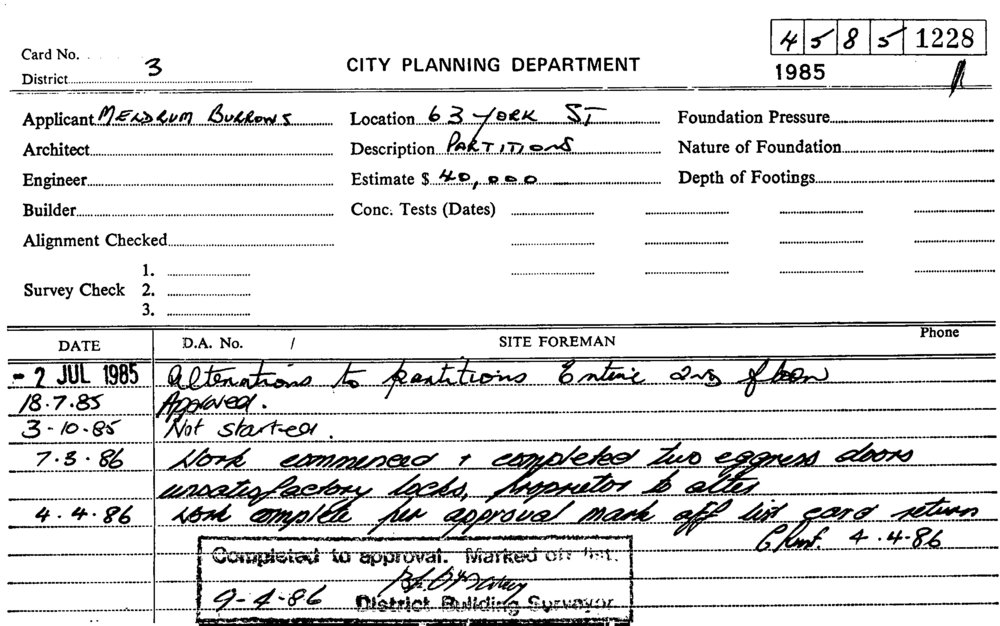 4 5 8 5 1228
Card No.
District 3
CITY PLANNING DEPARTMENT
1985
Applicant MENDRUM BURROWS
Location 63 YORK ST
Foundation Pressure
Architect
Description PARTITIONS
Nature of Foundation
Engineer
Estimate $ 40,000
Depth of Footings
Builder
Conc. Tests (Dates)
Alignment Checked
Survey Check
1.
2.
3.
DATE D.A. No. / SITE FOREMAN Phone
- 2 JUL 1985 Alterations to partitions Entire 2nd floor
18.7.85 Approved.
3-10-85 Not started.
7.3.86 Work commenced + completed two eggress doors
unsatisfactory locks, proprietor to alter
4.4.86 Work complete per approval mark off list card return
4.4.86
Completed to approval. Marked off list.
9-4-86 District Building Surveyor